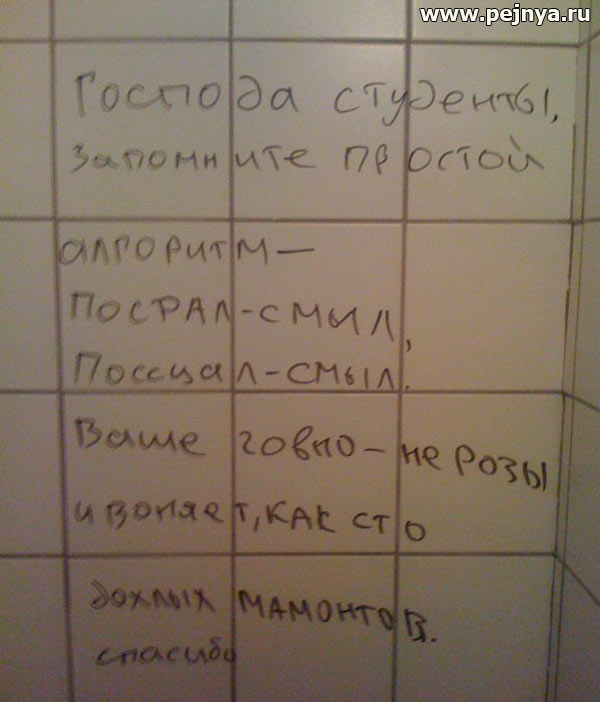 www.pejnya.ru
Господа студенты,
Запомните простой
алгоритм—
посрал-смыл,
Поссцал-смыл.
Ваше говно-не розы
и воняет, как сто
дохлых мамонтов.
спасибо